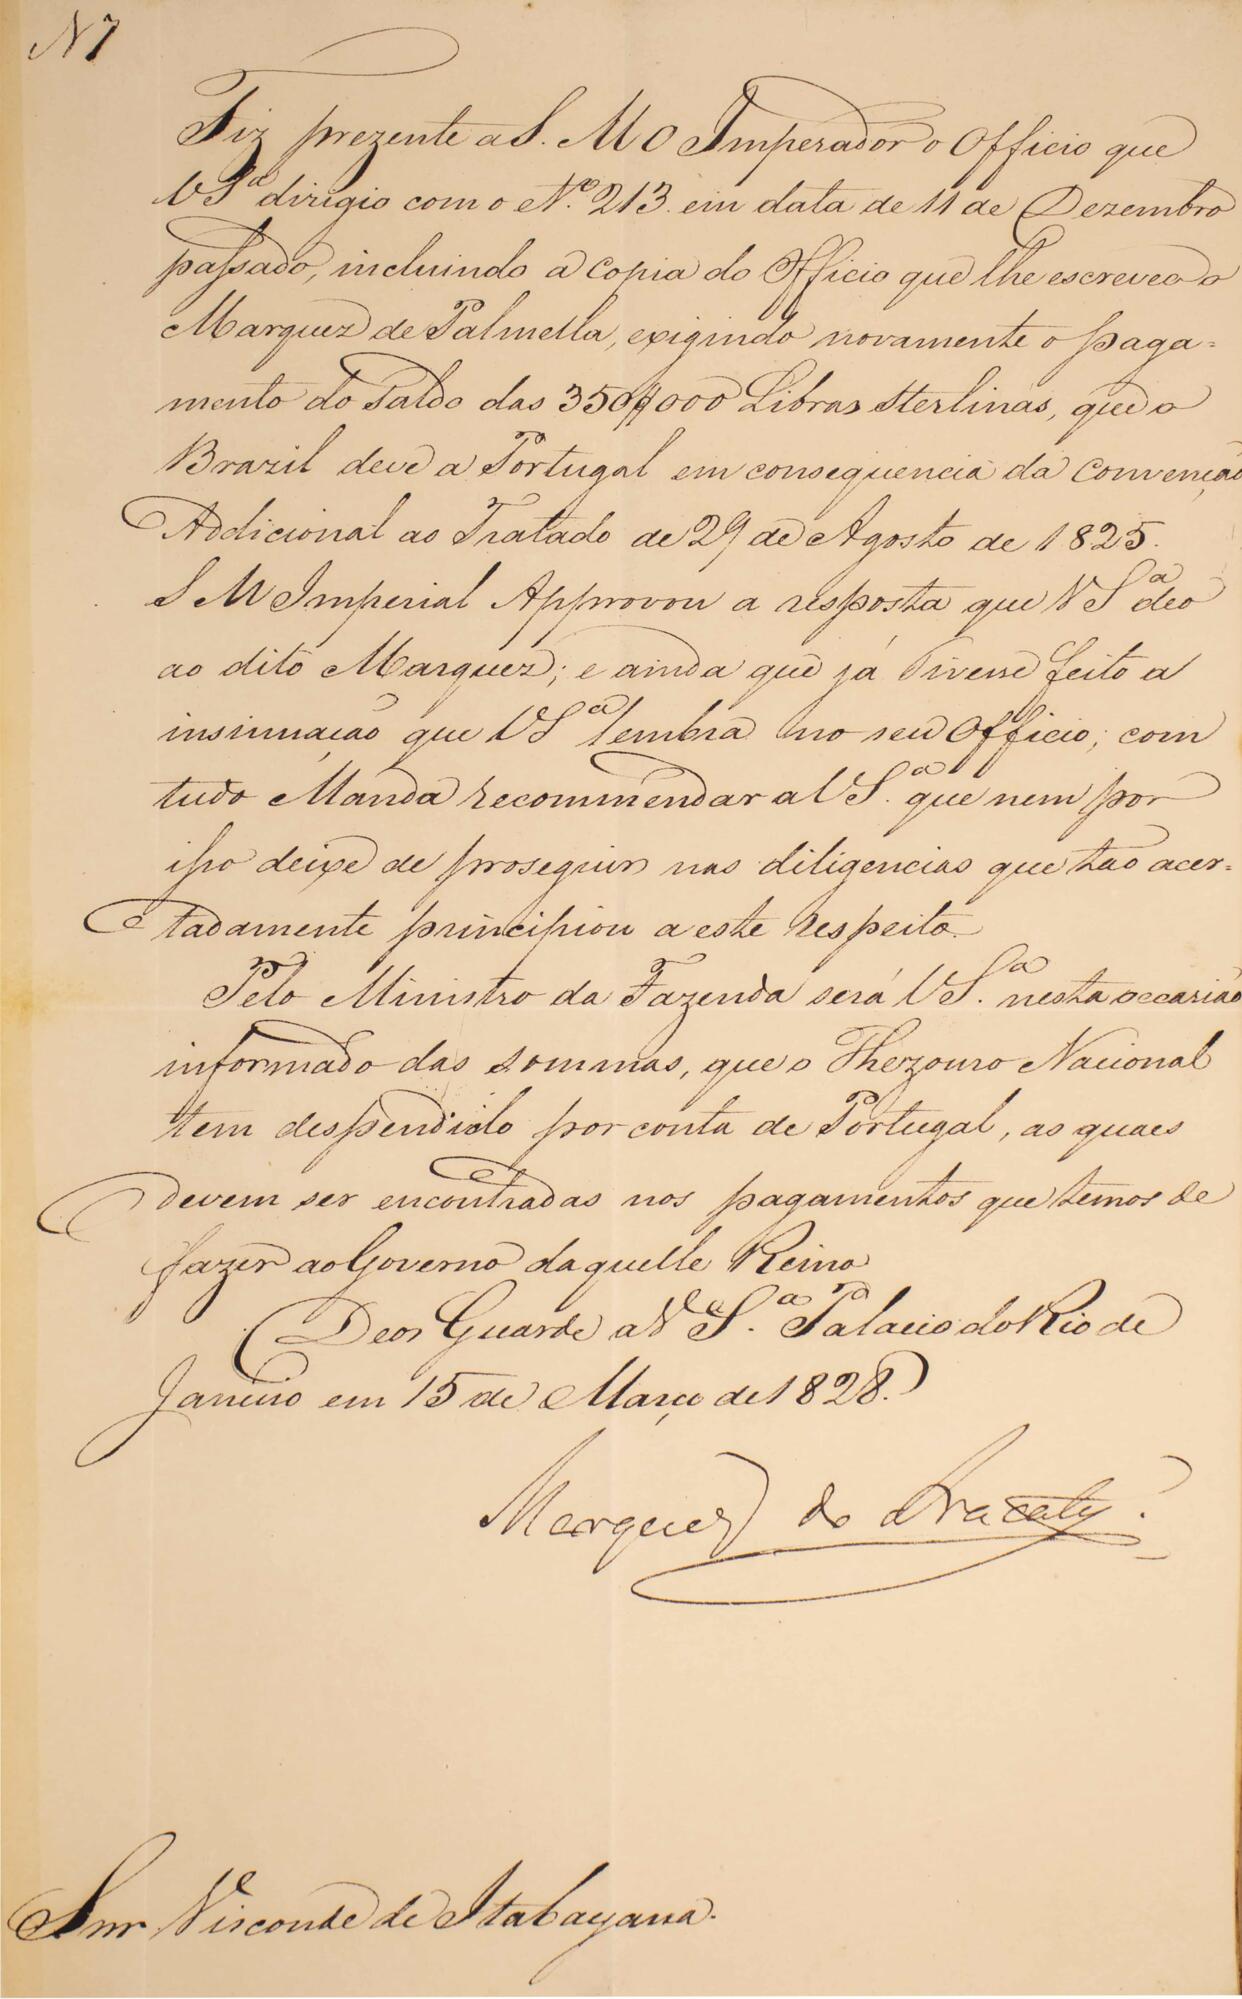 N 7
Fiz prezente a S. M O Imperador o Officio que
V Sª dirigio com o Nº. 213. em data de 11 de Dezembro
passado, incluindo a copia do Officio que lhe escreveo o
Marquez de Palmella, exigindo novamente o paga=
mento do Saldo das 350//000 Libras Sterlinas, que o
Brazil deve a Portugal em consequencia da Convenção
Addicional ao Tratado de 29 de Agosto de 1825.
S M Imperial Approvou a resposta que V Sª deo
ao dito Marquez; e ainda que já tivesse feito a
insinuação que V Sª lembra no seu Officio; com
tudo Manda recommendar a V S.ª que nem por
isso deixe de proseguir nas diligencias que tão acer=
tadamente principiou a este respeito.
Pelo Ministro da Fazenda será V S.ª nesta occasião
informado das sommas, que o Thezouro Nacional
tem despendido por conta de Portugal, as quaes
devem ser encontradas nos pagamentos que temos de
fazer ao Governo daquelle Reino
Deos Guarde a V S.ª Palacio do Rio de
Janeiro em 15 de Março de 1828.
Marquez do Aracaty.
Snr Visconde de Itabayana.